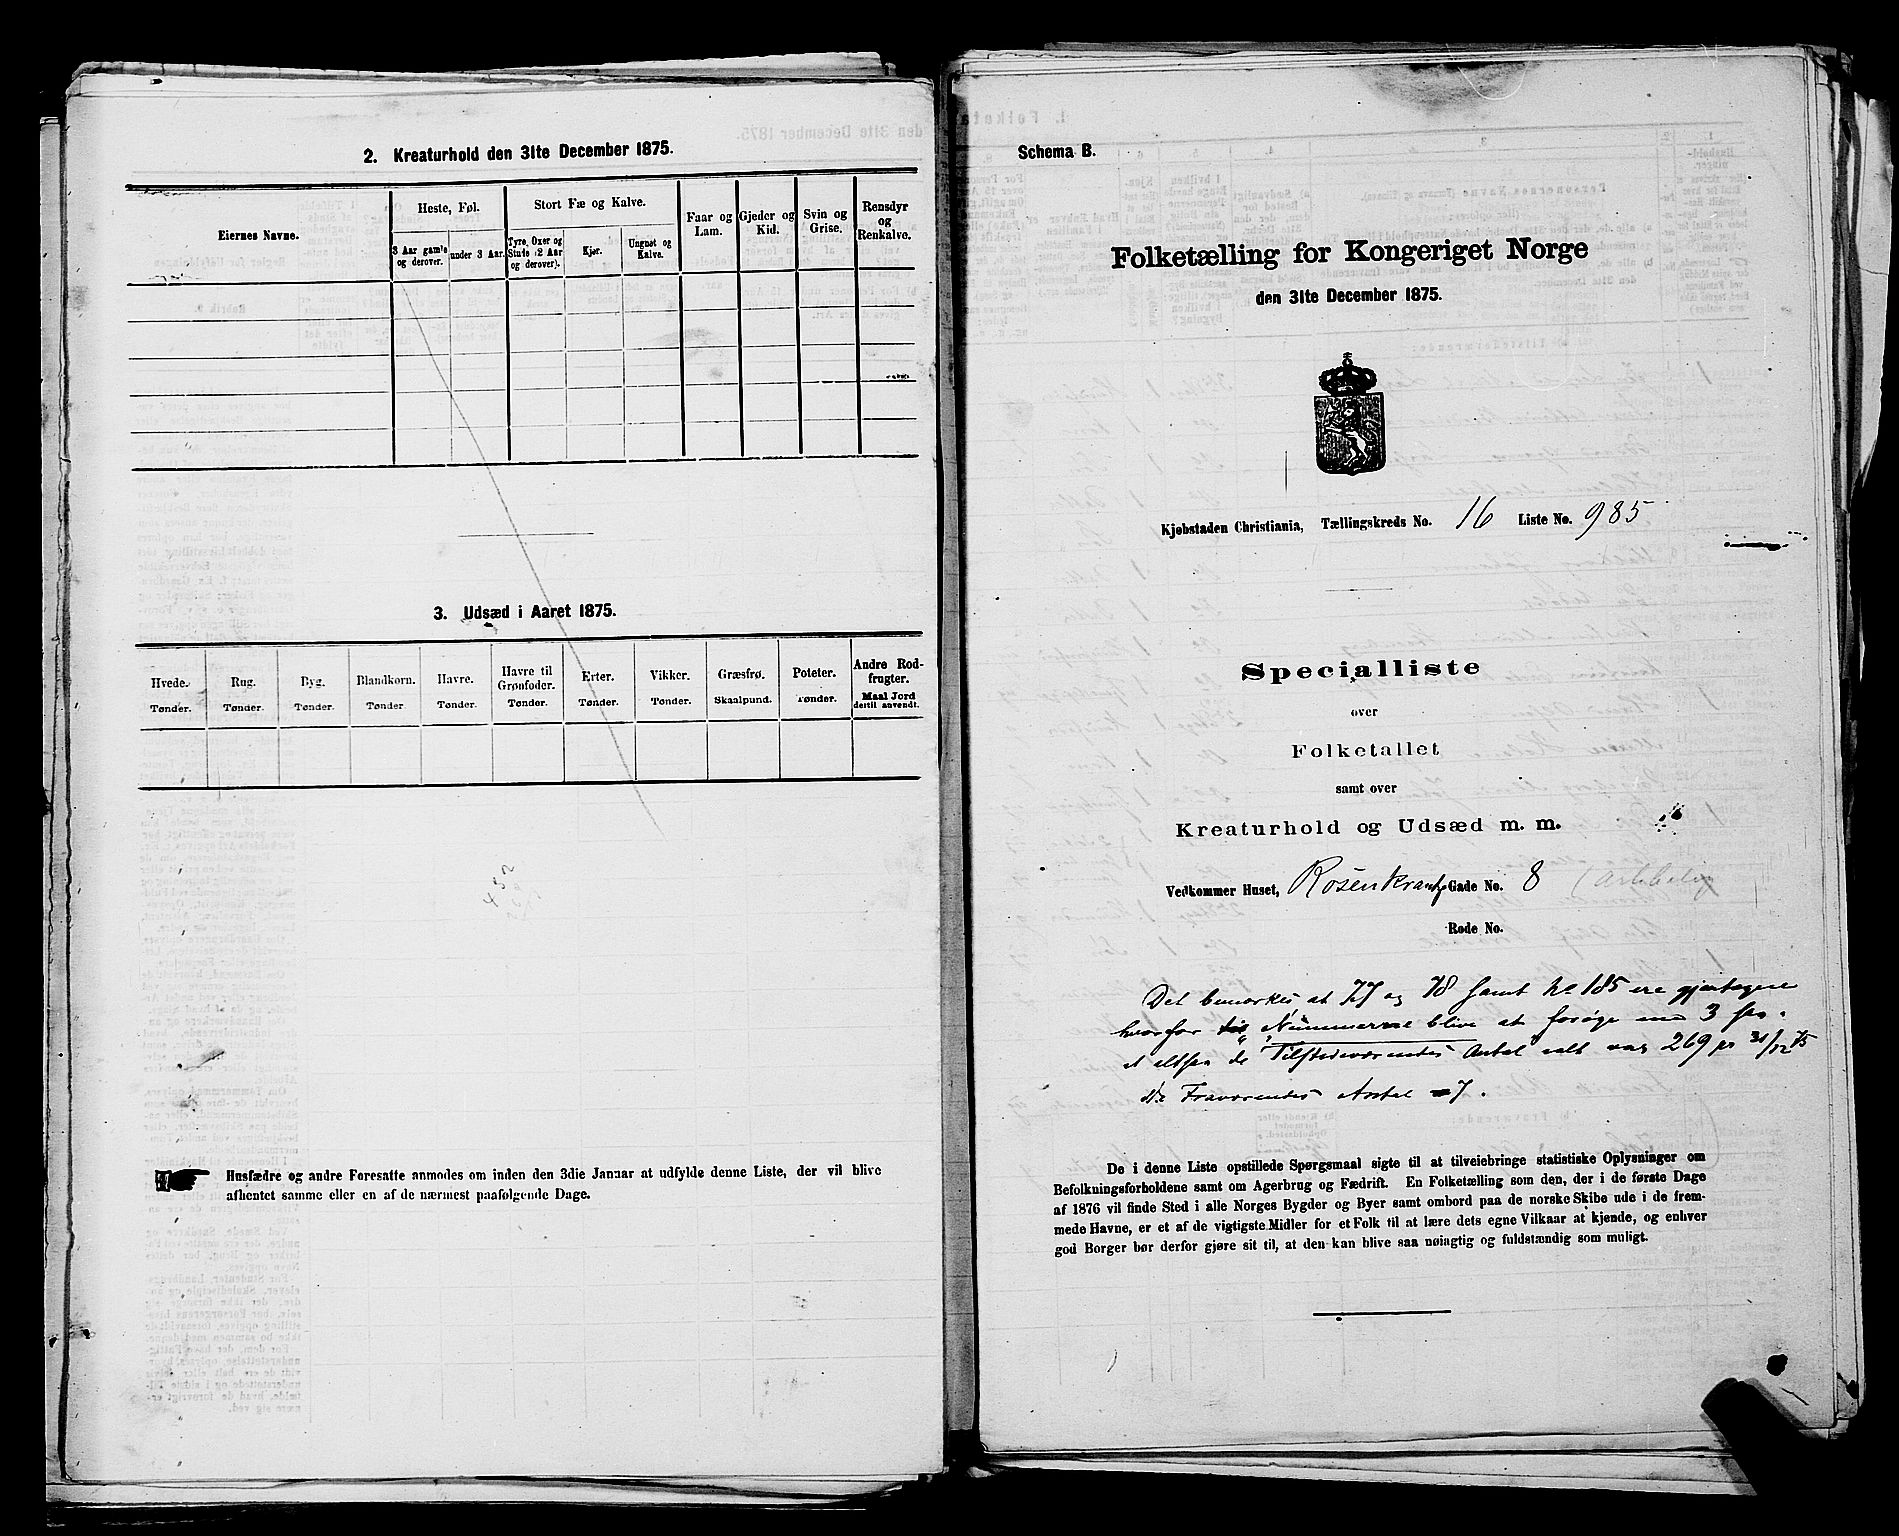 2. Kreaturhold den 31te December 1875.
Eiernes Navne.
Heste, Føl.
3 Aar gamle og derover.
under 3 Aar.
Stort Fæ og Kalve.
Tyre, Oxer og Stude (2 Aar og derover).
Kjør.
Ungnøt og Kalve.
Faar og Lam.
Gjeder og Kid.
Svin og Grise.
Rensdyr og Renkalve.
3. Udsæd i Aaret 1875.
Hvede. Tønder.
Rug. Tønder.
Byg. Tønder.
Blandkorn. Tønder.
Havre. Tønder.
Havre til Grønfoder. Tønder.
Erter. Tønder.
Vikker. Tønder.
Græsfrø. Skaalpund.
Poteter. Tønder.
Andre Rodfrugter. Maal Jord dertil anvendt.
Husfædre og andre Foresatte anmodes om inden den 3die Januar at udfylde denne Liste, der vil blive
afhentet samme eller en af de nærmest paafølgende Dage.
Schema B.
Folketælling for Kongeriget Norge
den 31te December 1875.
Kjøbstaden Christiania, Tællingskreds No. 16 Liste No. 985
Specialliste
over
Folketallet
samt over
Kreaturhold og Udsæd m. m.
Vedkommer Huset, Rosenkrantz Gade No. 8
Rode No.
Det bemærkes at 77 og 78 samt No 185 ere gjentagne
hvorfor Nummerne blive at forøge med 3
at altsaa de Tilstedeværendes Antal var 269 pr 31/12 75
de Fraværendes Antal 7.
De i denne Liste opstillede Spørgsmaal sigte til at tilveiebringe statistiske Oplysninger om
Befolkningsforholdene samt om Agerbrug og Fædrift. En Folketælling som den, der i de første Dage
af 1876 vil finde Sted i alle Norges Bygder og Byer samt ombord paa de norske Skibe ude i de frem-
mede Havne, er et af de vigtigste Midler for et Folk til at lære dets egne Vilkaar at kjende, og enhver
god Borger bør derfor gjøre sit til, at den kan blive saa nøiagtig og fuldstændig som muligt.